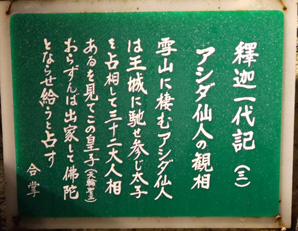 釋迦一代記(三)
アシダ仙人の観相
雪山に棲むアシダ仙人
は王城に馳せ参じ太子
を占相して三十二大人相
あるを見てこの皇子(転輪聖王)
わらずんば出家して佛陀
とならせ給うと占す
合掌